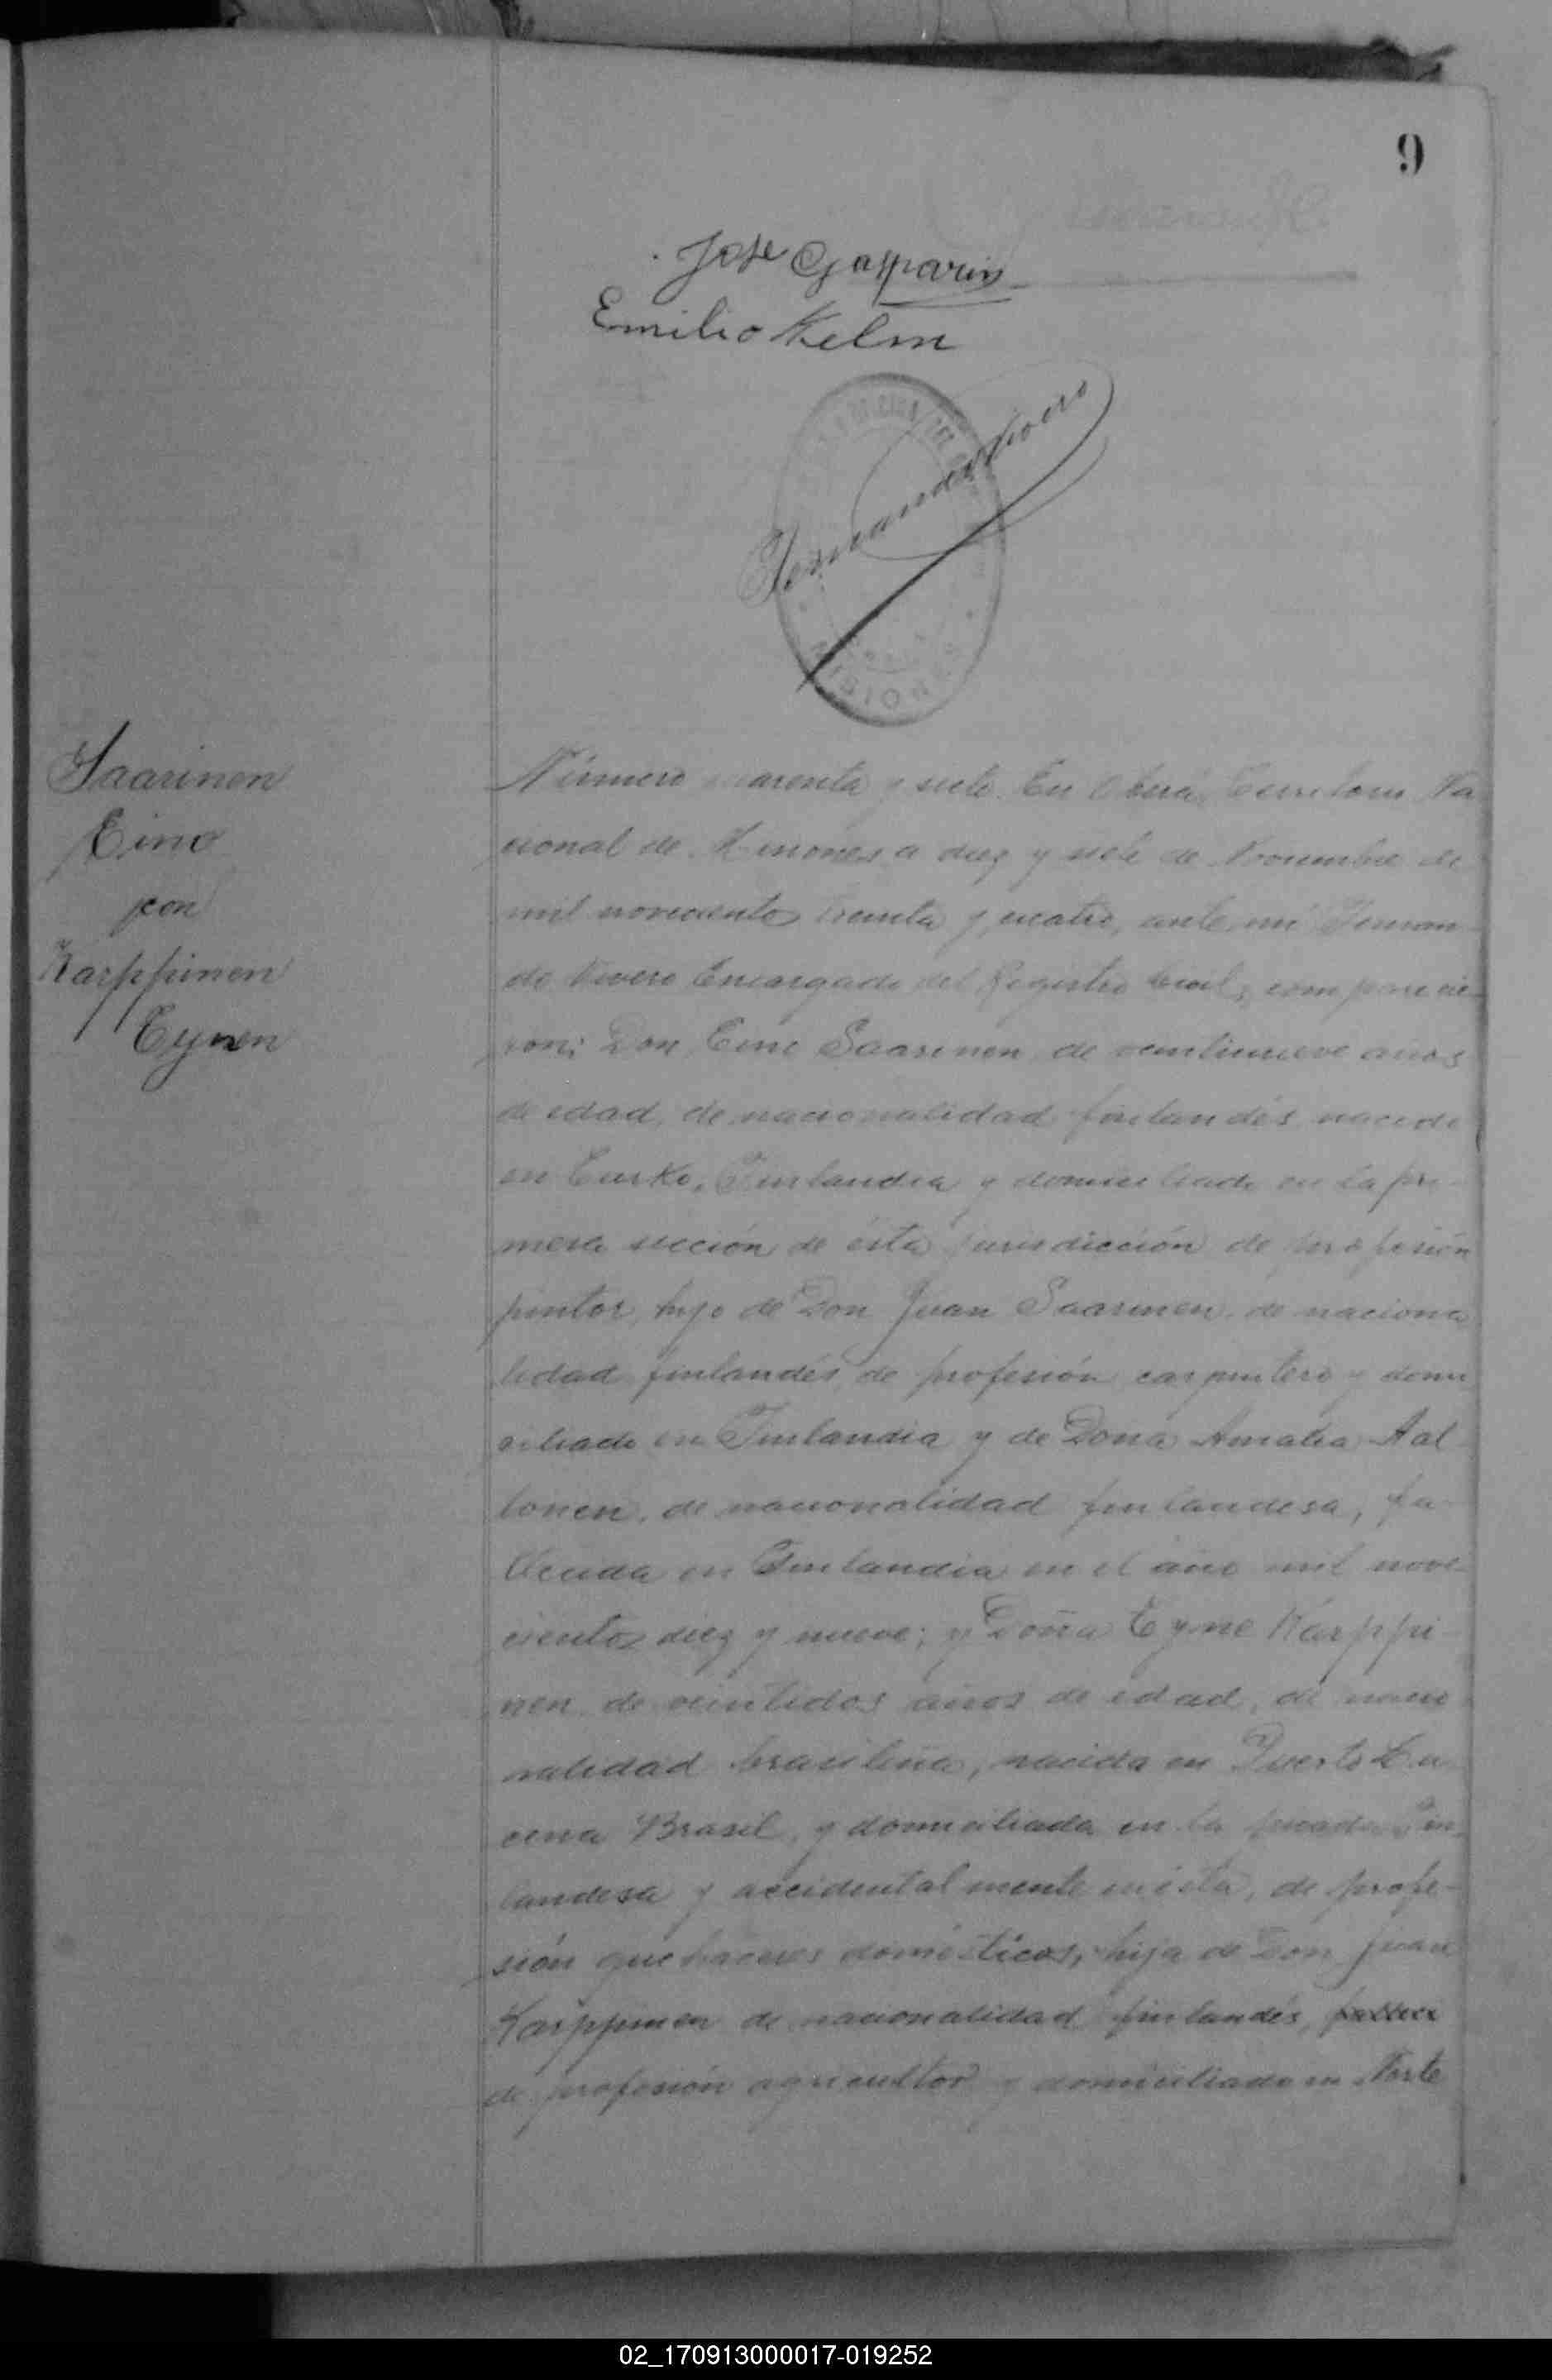 9
Jose Gasparin
Emilio Kelm
Fernando Rivero
MISIONES
Saarinen
Eino
con
Karppinen
Eynen
Número cuarenta y siete. En Oberá, Territorio Na
cional de Misiones a diez y siete de Noviembre de
mil novecientos treinta y cuatro, ante mi Fernan-
do Rivero Encargado del Registro Civil, comparecie-
ron; Don Eino Saarinen, de veintinueve años
de edad, de nacionalidad finlandés nacido
en Turko, Finlandia y domiciliado en la pri-
mera sección de ésta jurisdicción de profesión
pintor, hijo de Don Juan Saarinen, de naciona
lidad finlandés, de profesión carpintero y domi
ciliado en Finlandia y de Doña Amalia Aal-
tonen, de nacionalidad finlandesa, fa-
llecida en Finlandia en el año mil nove-
cientos diez y nueve; y Doña Eyne Karppi-
nen, de veintidos años de edad, de nacio
nalidad brasileña, nacida en Puerto Lu
cena Brasil, y domiciliada en la picada Fin
landesa y accidentalmente en ésta, de profe-
sión quehaceres domésticos, hija de Don Juan
Karppinen de nacionalidad finlandés,
de profesión agricultor y domiciliado en Norte
02_170913000017-019252